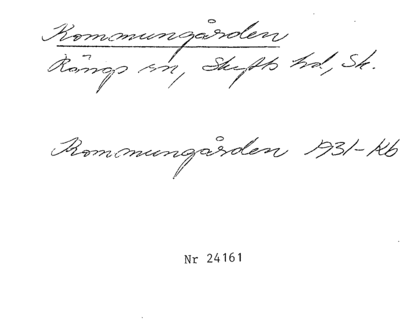 Kommungården
Rängs sn, Skytts hd, Sk.
Kommungården 1931-Kb
Nr 24161